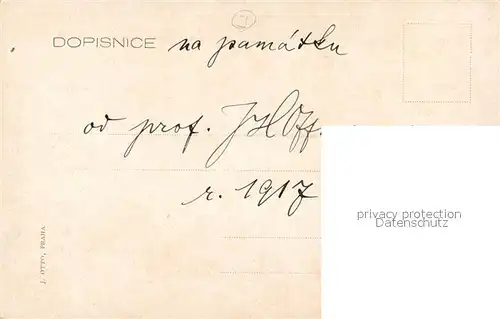 DOPISNICE na památku
od prof.
r. 1917
privacy protection
Datenschutz
J. OTTO, PRAHA